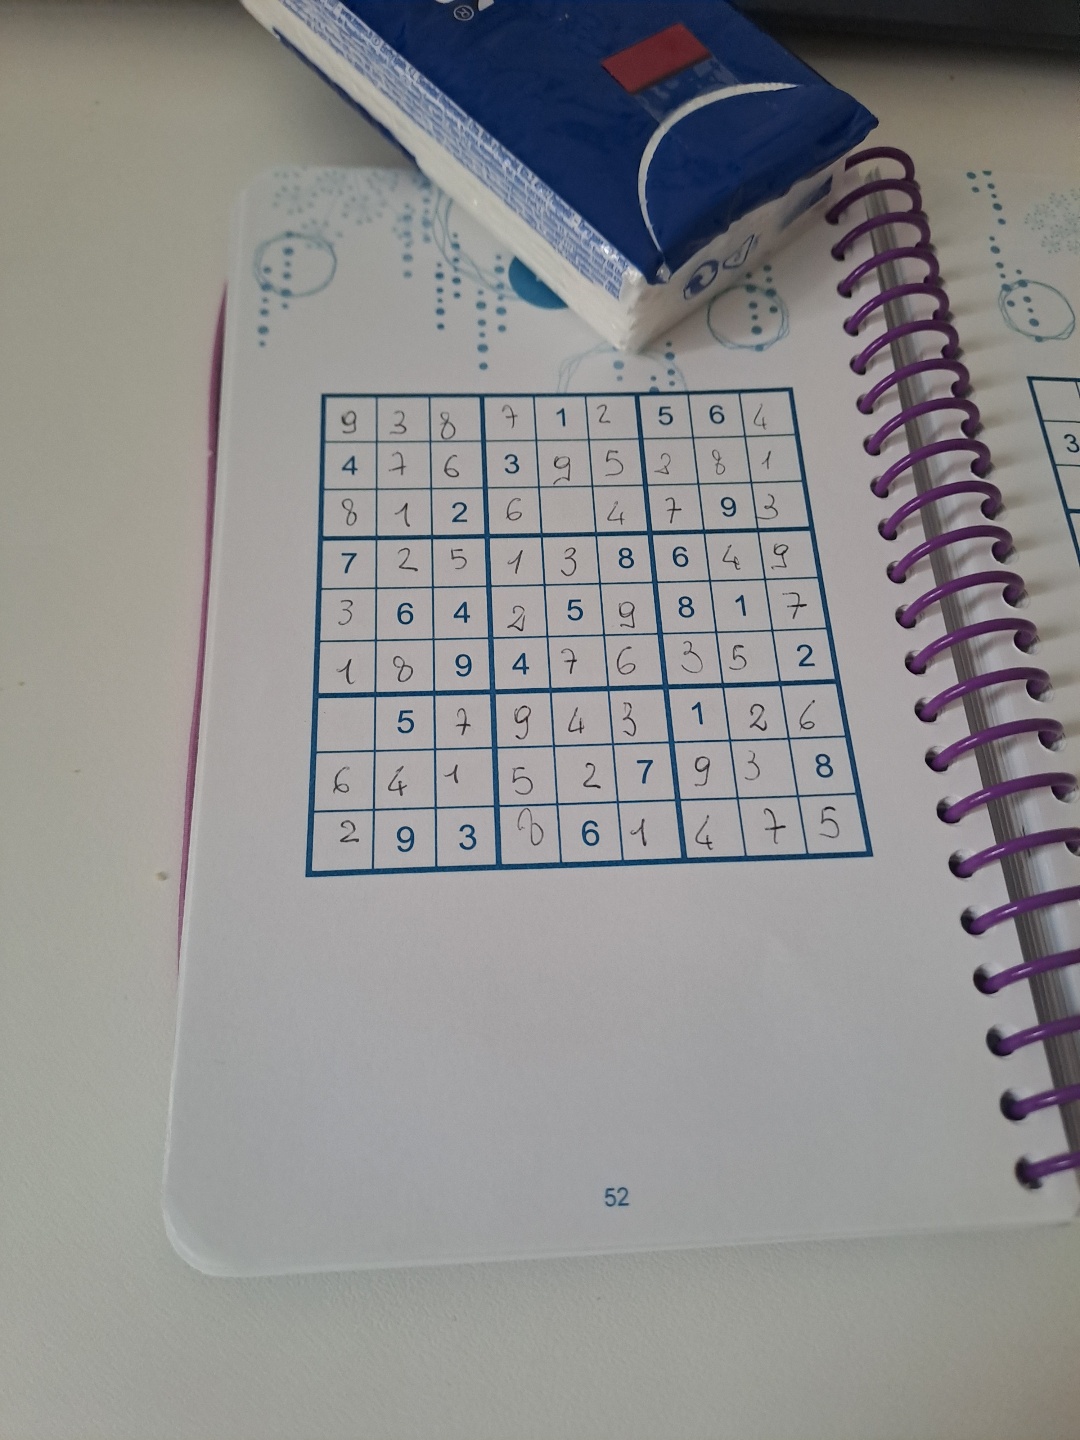 ®
9 3 8 7 1 2 5 6 4
4 7 6 3 9 5 2 8 1
8 1 2 6 4 7 9 3
7 2 5 1 3 8 6 4 9
3 6 4 2 5 9 8 1 7
1 8 9 4 7 6 3 5 2
5 7 9 4 3 1 2 6
6 4 1 5 2 7 9 3 8
2 9 3 8 6 1 4 7 5
3
52